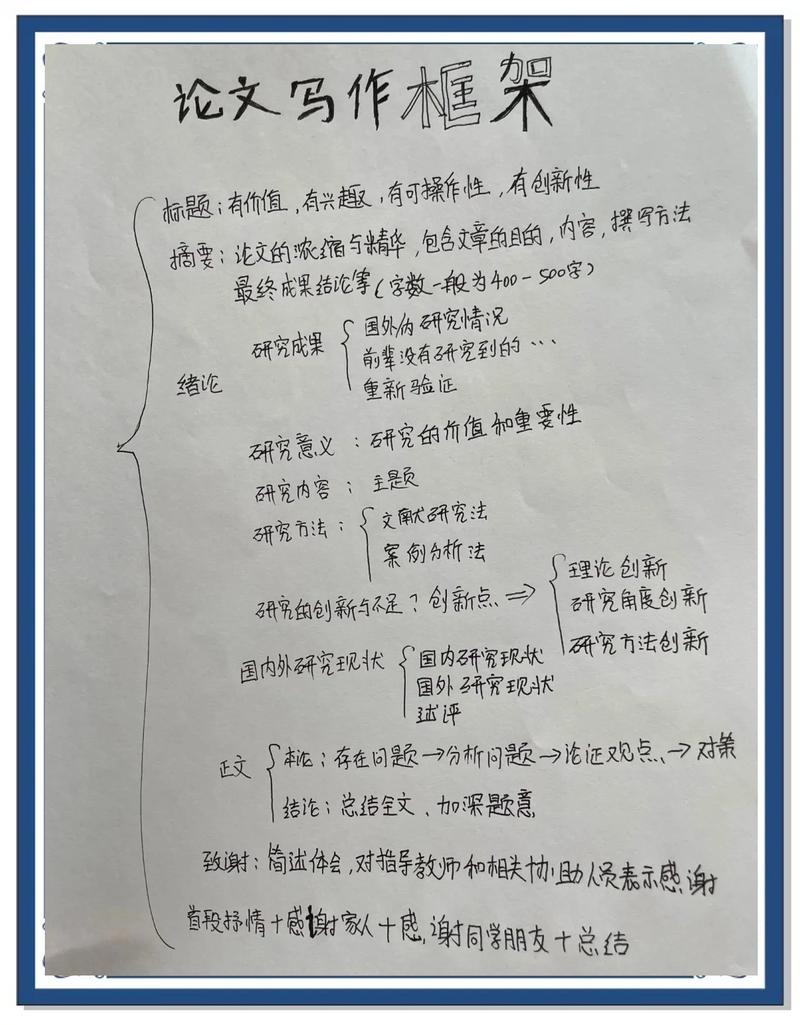 论文写作框架
标题：有价值，有兴趣，有可操作性，有创新性
摘要：论文的浓缩与精华，包含文章的目的，内容，撰写方法
最终成果结论等（字数一般为400-500字）
绪论
研究成果
国外内研究情况
前辈没有研究到的…
重新验证
研究意义：研究的价值和重要性
研究内容：主题
研究方法：
文献研究法
案例分析法
研究的创新与不足？创新点⇒
理论创新
研究角度创新
研究方法创新
国内外研究现状
国内研究现状
国外研究现状
述评
正文
本论：存在问题→分析问题→论证观点→对策
结论：总结全文、加深题意
致谢：简述体会，对指导教师和相关协助人员表示感谢
首段抒情+感谢家人+感谢同学朋友+总结